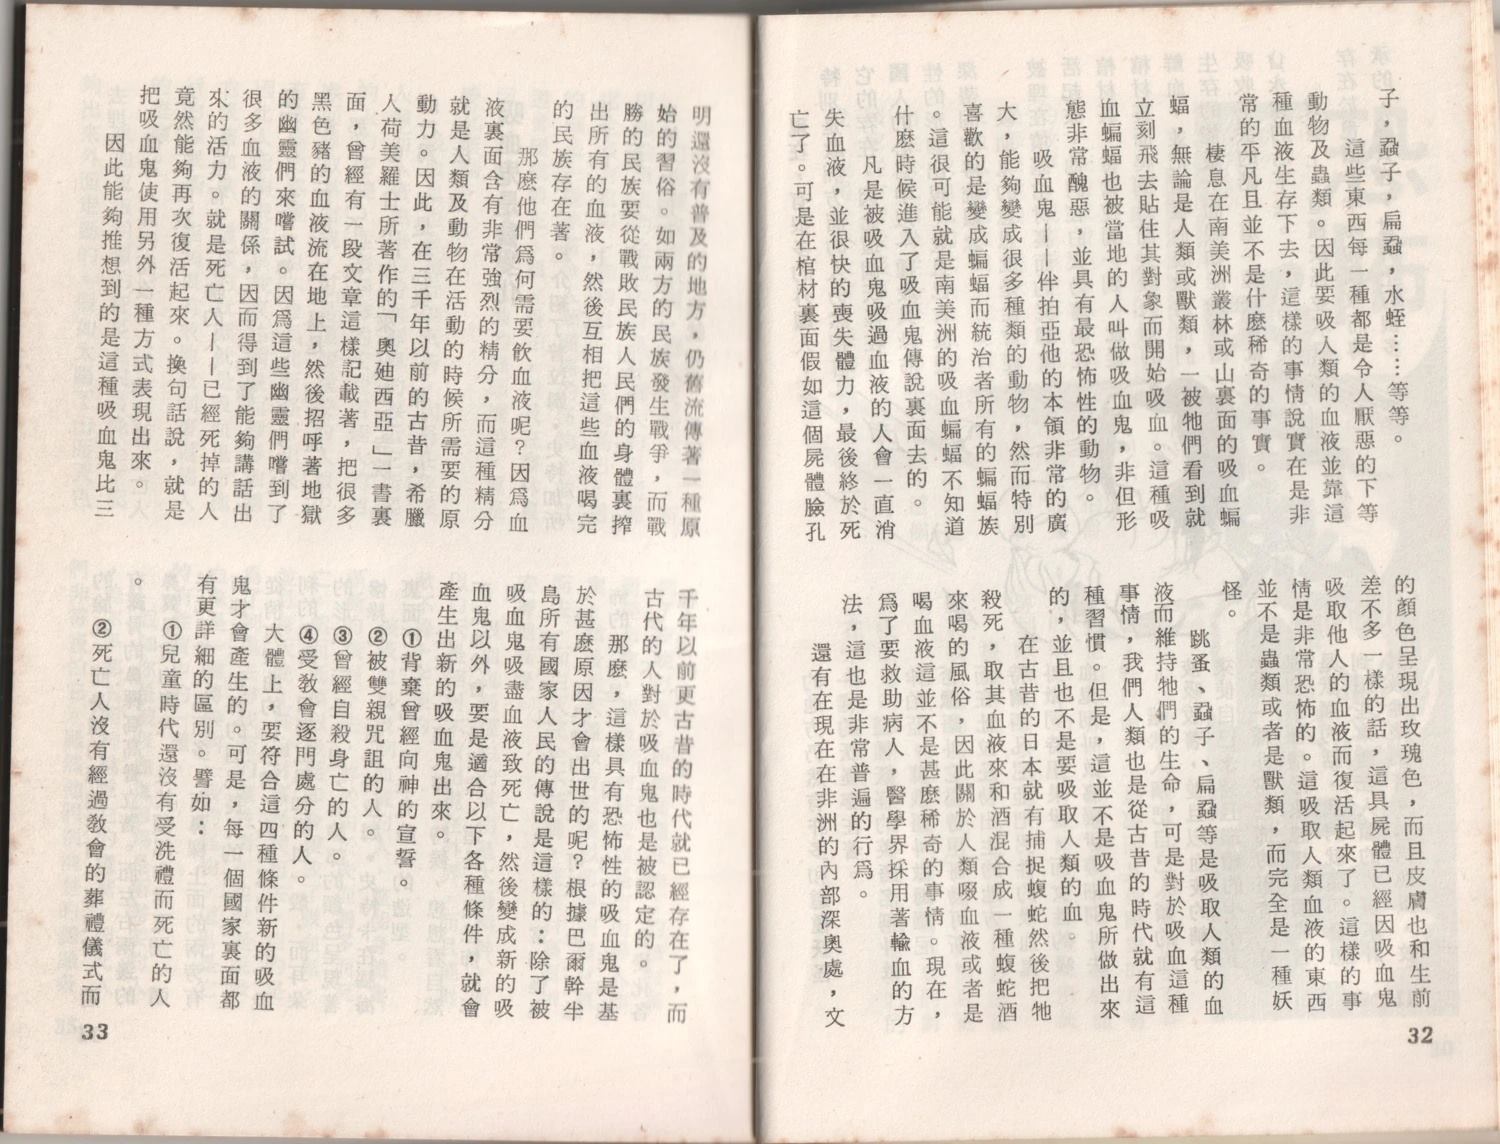 子，蝨子，扁蝨，水蛭……等等。
這些東西每一種都是令人厭惡的下等
動物及蟲類。因此要吸人類的血液並靠這
種血液生存下去，這樣的事情說實在是非
常的平凡且並不是什麼稀奇的事實。
棲息在南美洲叢林或山裏面的吸血蝙
蝠，無論是人類或獸類，一被牠們看到就
立刻飛去貼住其對象而開始吸血。這種吸
血蝙蝠也被當地的人叫做吸血鬼，非但形
態非常醜惡，並具有最恐怖性的動物。
吸血鬼——伴拍亞他的本領非常的廣
大，能夠變成很多種類的動物，然而特別
喜歡的是變成蝙蝠而統治者所有的蝙蝠族
。這很可能就是南美洲的吸血蝙蝠不知道
什麼時候進入了吸血鬼傳說裏面去的。
凡是被吸血鬼吸過血液的人會一直消
失血液，並很快的喪失體力，最後終於死
亡了。可是在棺材裏面假如這個屍體臉孔
的顏色呈現出玫瑰色，而且皮膚也和生前
差不多一樣的話，這具屍體已經因吸血鬼
吸取他人的血液而復活起來了。這樣的事
情是非常恐怖的。這吸取人類血液的東西
並不是蟲類或者是獸類，而完全是一種妖
怪。
跳蚤、蝨子、扁蝨等是吸取人類的血
液而維持牠們的生命，可是對於吸血這種
事情，我們人類也是從古昔的時代就有這
種習慣。但是，這並不是吸血鬼所做出來
的，並且也不是要吸取人類的血。
在古昔的日本就有捕捉蝮蛇然後把牠
殺死，取其血液來和酒混合成一種蝮蛇酒
來喝的風俗，因此關於人類啜血液或者是
喝血液這並不是甚麼稀奇的事情。現在，
爲了要救助病人，醫學界採用著輸血的方
法，這也是非常普遍的行爲。
還有在現在在非洲的內部深奧處，文
32
明還沒有普及的地方，仍舊流傳著一種原
始的習俗。如兩方的民族發生戰爭，而戰
勝的民族要從戰敗民族人民們的身體裏搾
出所有的血液，然後互相把這些血液喝完
的民族存在著。
那麼他們爲何需要飲血液呢？因爲血
液裏面含有非常強烈的精分，而這種精分
就是人類及動物在活動的時候所需要的原
動力。因此，在三千年以前的古昔，希臘
人荷美羅士所著作的「奧廸西亞」一書裏
面，曾經有一段文章這樣記載著，把很多
黑色豬的血液流在地上，然後招呼著地獄
的幽靈們來嚐試。因爲這些幽靈們嚐到了
很多血液的關係，因而得到了能夠講話出
來的活力。就是死亡人——已經死掉的人
竟然能夠再次復活起來。換句話說，就是
把吸血鬼使用另外一種方式表現出來。
因此能夠推想到的是這種吸血鬼比三
千年以前更古昔的時代就已經存在了，而
古代的人對於吸血鬼也是被認定的。
那麼，這樣具有恐怖性的吸血鬼是基
於甚麼原因才會出世的呢？根據巴爾幹半
島所有國家人民的傳說是這樣的：除了被
吸血鬼吸盡血液致死亡，然後變成新的吸
血鬼以外，要是適合以下各種條件，就會
產生出新的吸血鬼出來。
①背棄曾經向神的宣誓。
②被雙親咒詛的人。
③曾經自殺身亡的人。
④受教會逐門處分的人。
大體上，要符合這四種條件新的吸血
鬼才會產生的。可是，每一個國家裏面都
有更詳細的區別。譬如：
①兒童時代還沒有受洗禮而死亡的人
。
②死亡人沒有經過教會的葬禮儀式而
33